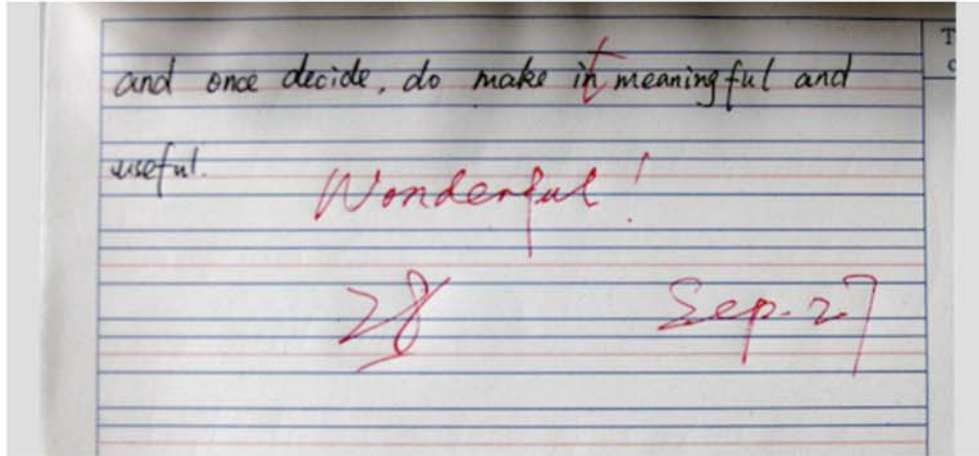 and once decide, do make it meaningful and
useful.
Wonderful!
28
Sep. 27
T